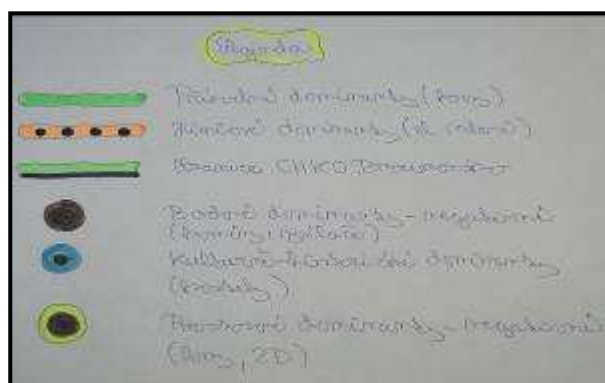 Legenda
Přírodní dominanty (hory)
dominanty
Hranice CHKO
Bodové dominanty - negativní
(komíny, vysílače)
Kulturně-historické dominanty
(kostely)
Prostorové dominanty - negativní
(lomy, ZD)